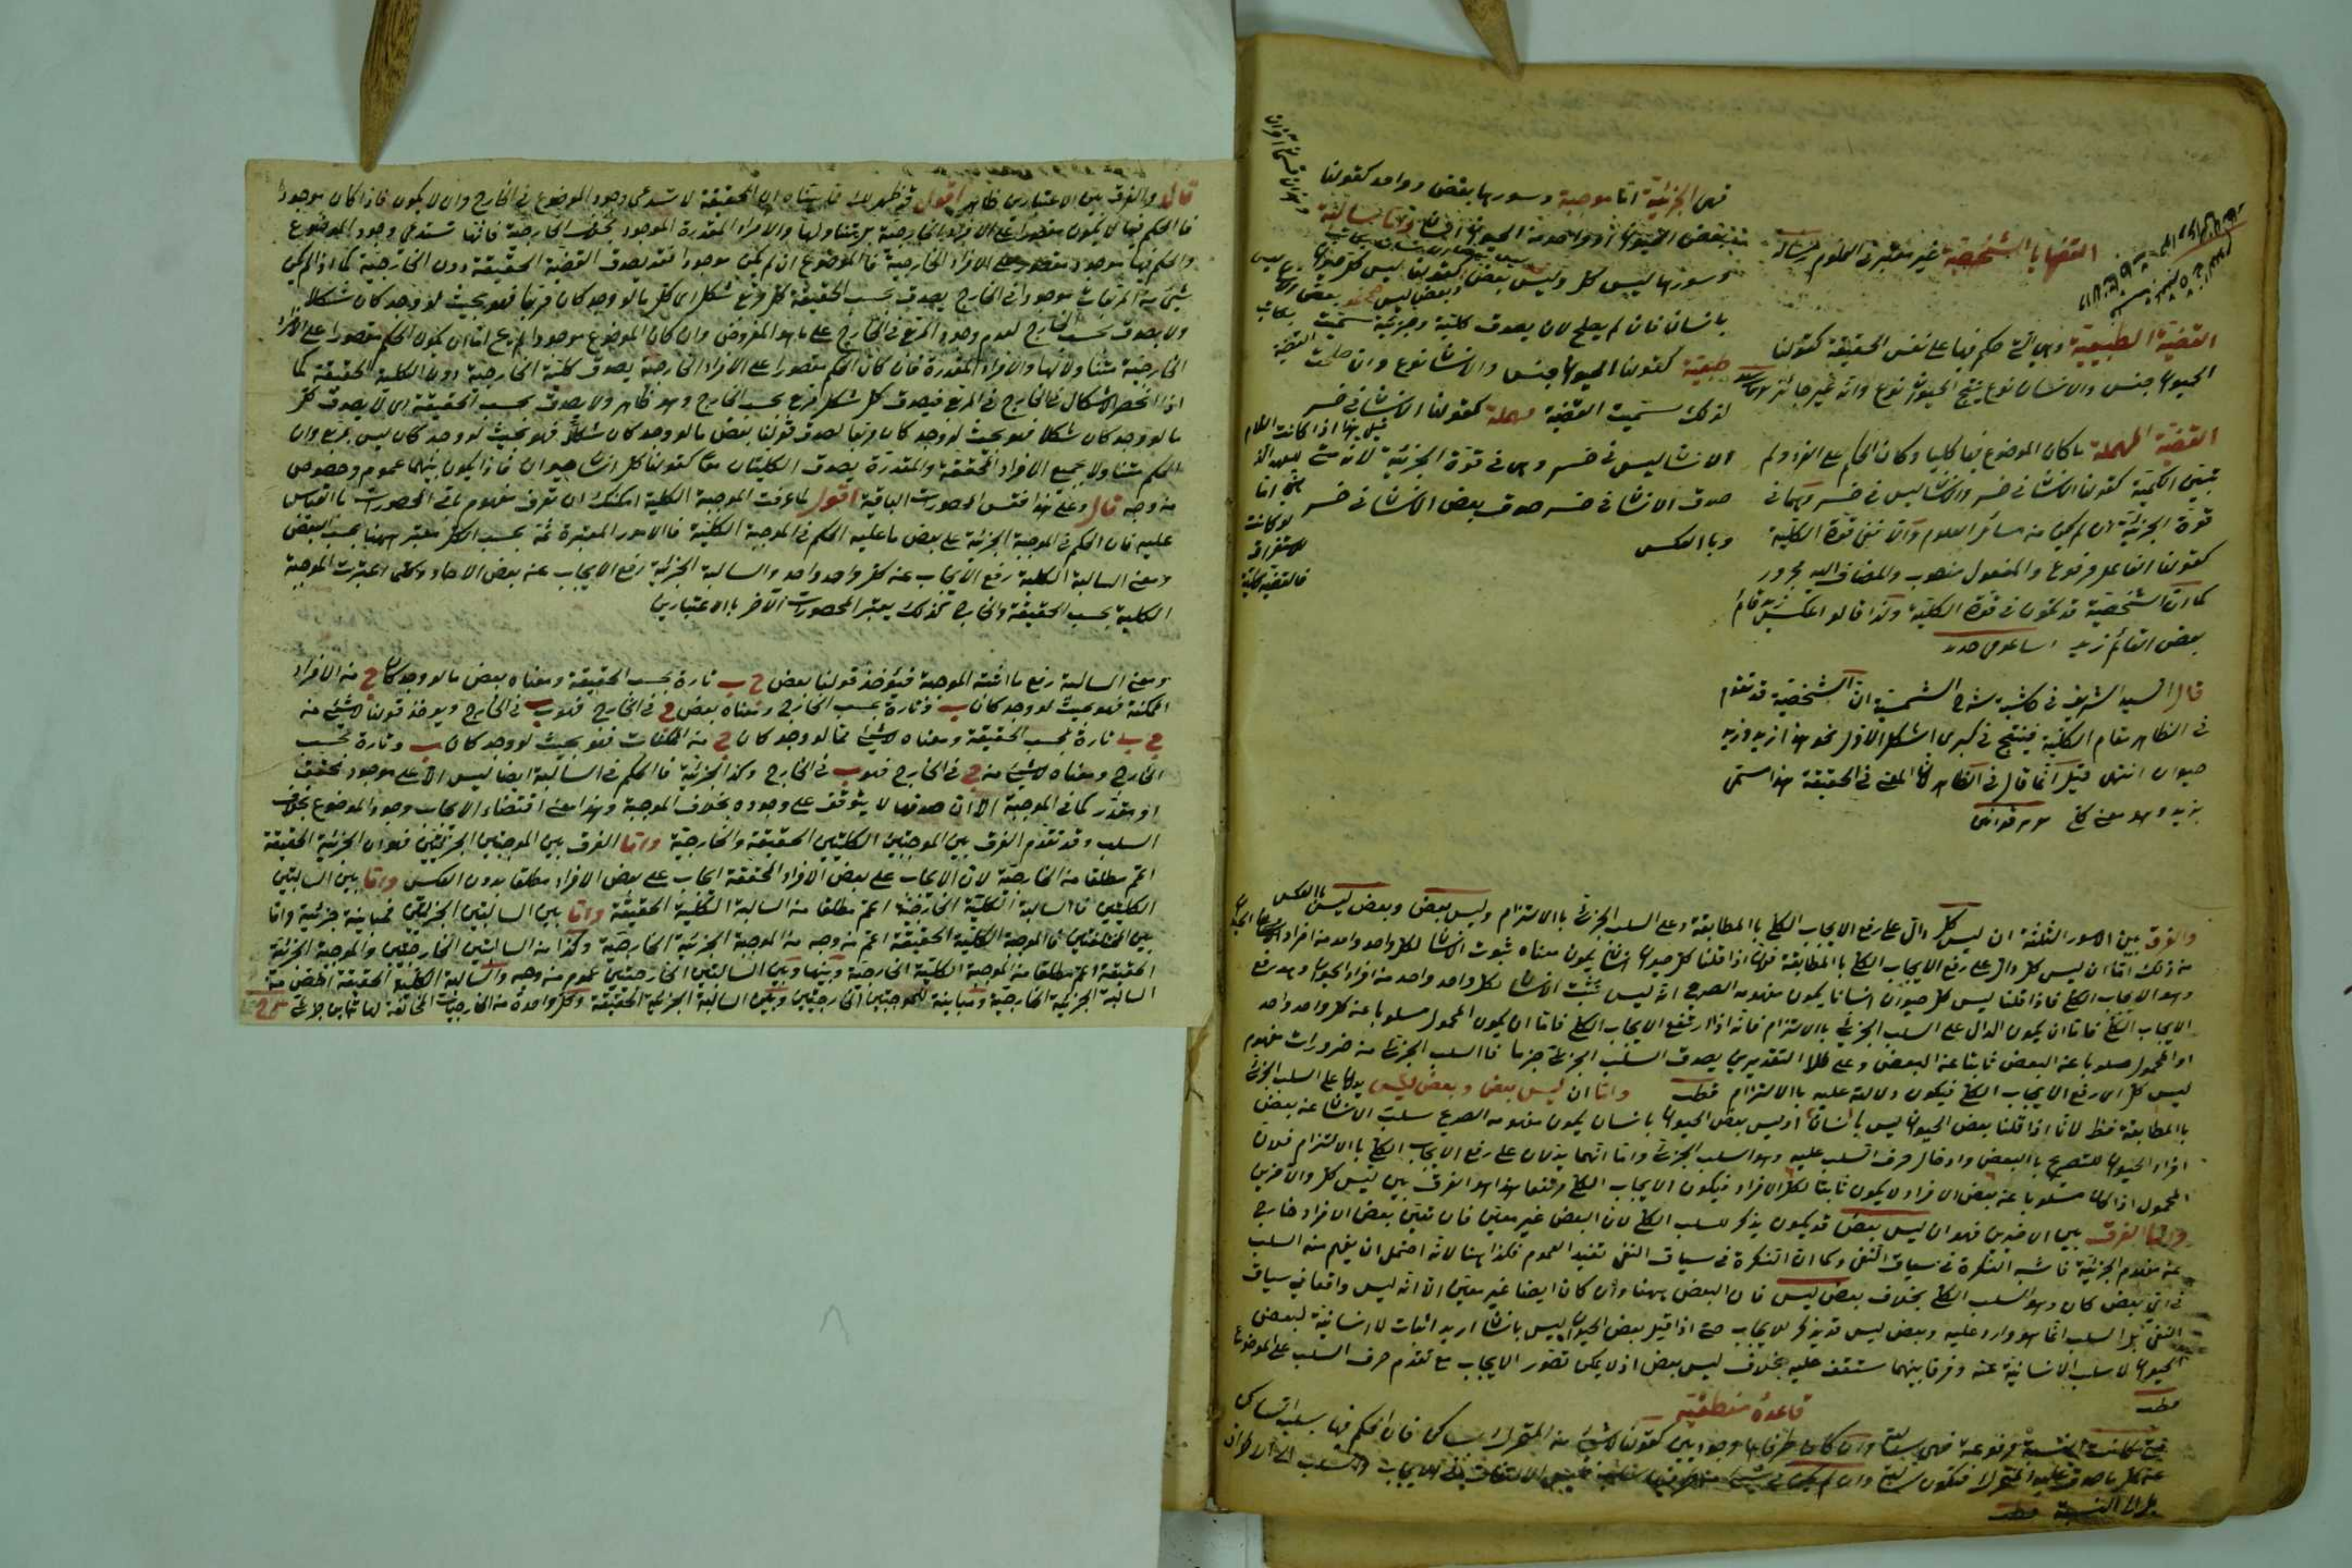 فهي الجزئية اما موجبة وسورها بعض وواحد كقولنا
بعض الحيوان او واحد من الحيوان انسان واما سالبة
وسورها ليس كل وليس بعض وبعض ليس
بانسان فان لم يصلح لان يصدق كلية وجزئية سميت القضية
طبيعية كقولنا الحيوان جنس والانسان نوع وان صلحت
لذلك سميت القضية مهملة كقولنا الانسان في خسر
الانسان ليس في خسر وهي في قوة الجزئية لانه متى
صدق الانسان في خسر صدق بعض الانسان في خسر
وبالعكس
القضايا الشخصية غير معتبرة في العلوم
القضية الطبيعية وهي التي حكم فيها على نفس الحقيقة كقولنا
الحيوان جنس والانسان نوع ينتج الحيوان نوع وانه غير جائز
القضية المهملة ما كان الموضوع فيها كليا وكان الحكم على افراده ولم
تبين الكمية كقولنا الانسان في خسر والانسان ليس في خسر وهما في
قوة الجزئية ان لم يكن من مسائل العلوم والا ففي قوة الكلية
كقولنا الفاعل مرفوع والمفعول منصوب والمضاف اليه مجرور
كما ان الشخصية قد تكون في قوة الكلية ولذا قالوا عكس زيد قائم
بعض القائم زيد
قال السيد الشريف في حاشية شرح الشمسية ان الشخصية قد تقوم
في الظاهر مقام الكلية فينتج في كبرى الشكل الاول نحو هذا زيد وزيد
حيوان انتهى قيل انما قال في الظاهر لان المعنى في الحقيقة هذا مسمى
بزيد وهو معنى كلي
والفرق بين الاسوار الثلثة ان ليس كل دال على رفع الايجاب الكلي بالمطابقة وعلى السلب الجزئي بالالتزام وليس بعض وبعض ليس بالعكس
من ذلك اما ان ليس كل دال على رفع الايجاب الكلي بالمطابقة فلانا اذا قلنا كل حيوان انسان يكون معناه ثبوت الانسان لكل واحد واحد من افراد الحيوان
وهو الايجاب الكلي فاذا قلنا ليس كل حيوان انسانا يكون مفهومه الصريح انه ليس يثبت الانسان لكل واحد واحد من افراد الحيوان وهو رفع
الايجاب الكلي واما ان يكون الدال على السلب الجزئي بالالتزام فانه اذا ارتفع الايجاب الكلي فاما ان يكون المحمول مسلوبا عن كل واحد واحد
او المحمول مسلوبا عن البعض ثابتا عن البعض وعلى كلا التقديرين يصدق السلب الجزئي جزما فالسلب الجزئي من ضروريات مفهوم
ليس كل اي رفع الايجاب الكلي فيكون دلالته عليه بالالتزام قطب واما ان ليس بعض وبعض ليس يدلان على السلب الجزئي
بالمطابقة فظ لانا اذا قلنا بعض الحيوان ليس بانسان او ليس بعض الحيوان بانسان يكون مفهومه الصريح سلب الانسان عن بعض
افراد الحيوان للتصريح بالبعض وادخال حرف السلب عليه وهو السلب الجزئي واما انهما يدلان على رفع الايجاب الكلي بالالتزام فلان
المحمول اذا كان مسلوبا عن بعض الافراد لا يكون ثابتا لكل الافراد فيكون الايجاب الكلي مرتفعا هذا هو الفرق بين ليس كل والاخرين
واما الفرق بين الاخيرين فهو ان ليس بعض قد يكون يذكر للسلب الكلي لان البعض غير معين فان تعين بعض الافراد خارج
عن مفهوم الجزئية فاشبه النكرة في سياق النفي وكما ان النكرة في سياق النفي تفيد العموم فكذا هنا لانه احتمل ان يفهم منه السلب
في اي بعض كان وهو السلب الكلي بخلاف بعض ليس فان البعض ههنا وان كان ايضا غير معين الا انه ليس واقعا في سياق
النفي بل السلب انما هو وارد عليه وبعض ليس قد يذكر للايجاب حتى اذا قيل بعض الحيوان ليس بانسان اريد اثبات لا انسانية لبعض
الحيوان لا سلب الانسانية عنه وفرق بينهما ستقف عليه بخلاف ليس بعض اذ لا يمكن تصور الايجاب مع تقدم حرف السلب على الموضوع
قطب
قاعدة منطقية
متى كانت النسبة مرفوعة فهي سالبة وان كان طرفاها وجوديين كقولنا لا شيء من المتحرك بساكن فان الحكم فيها بسلب الساكن
عن كل ما صدق عليه المتحرك فتكون سالبة
بل الى النسبة قطب
قال والفرق بين الاعتبارين ظاهر اقول قد ظهر لك مما بيناه ان الحقيقة لا تستدعي وجود الموضوع في الخارج وان لا يكون فاذا كان موجودا
فالحكم فيها لا يكون مقصورا على الافراد الخارجية بل يتناولها والافراد المقدرة الموجود بخلاف الخارجية فانها تستدعي وجود الموضوع
والحكم فيها موجود مقصور على الافراد الخارجية فالموضوع ان لم يكن موجودا فقد يصدق القضية الحقيقة دون الخارجية كما اذا لم يكن
شيء من المربعات موجودا في الخارج يصدق بحسب الحقيقة كل مربع شكل اي كل ما لو وجد كان مربعا فهو بحيث لو وجد كان شكلا
ولا يصدق بحسب الخارج لعدم وجود المربع في الخارج على ما هو المفروض وان كان الموضوع موجودا لم يخل اما ان يكون الحكم مقصورا على الافراد
الخارجية متناولا لها والافراد المقدرة فان كان الحكم مقصورا على الافراد الخارجية يصدق كلية الخارجية دون الكلية الحقيقة كما
اذا انحصر الاشكال في الخارج في المربع فيصدق كل شكل مربع بحسب الخارج وهو ظاهر ولا يصدق بحسب الحقيقة اي لا يصدق كل
ما لو وجد كان شكلا فهو بحيث لو وجد كان مربعا لصدق قولنا بعض ما لو وجد كان شكلا فهو بحيث لو وجد كان ليس بمربع وان
الحكم متناولا بجميع الافراد المحققة والمقدرة يصدق الكليتان معا كقولنا كل انسان حيوان فاذا يكون بينهما عموم وخصوص
من وجه قال وعلى هذا فقس المحصورات الباقية اقول لما عرفت الموجبة الكلية امكنك ان تعرف مفهوم باقي المحصورات بالقياس
عليه فان الحكم في الموجبة الجزئية على بعض ما عليه الحكم في الموجبة الكلية فالامور المعتبرة ثمة بحسب الكل معتبر ههنا بحسب البعض
ومعنى السالبة الكلية رفع الايجاب عن كل واحد واحد والسالبة الجزئية رفع الايجاب عن بعض الاحاد وكما اعتبرت الموجبة
الكلية بحسب الحقيقة والخارج كذلك يعتبر المحصورات الاخر بالاعتبارين
ومعنى السالبة رفع ما اثبته الموجبة فيؤخذ قولنا بعض ج ب تارة بحسب الحقيقة ومعناه بعض ما لو وجد كان ج من الافراد
الممكنة فهو بحيث لو وجد كان ب وتارة بحسب الخارج ومعناه بعض ج في الخارج فهو ب في الخارج ويؤخذ قولنا لا شيء من
ج ب تارة بحسب الحقيقة ومعناه لا شيء مما لو وجد كان ج من الممكنات فهو بحيث لو وجد كان ب وتارة بحسب
الخارج ومعناه لا شيء من ج في الخارج فهو ب في الخارج وكذا الجزئية فالحكم في السالبة ايضا ليس الا على موجود محقق
او مقدر كما في الموجبة الا ان صدقها لا يتوقف على وجوده بخلاف الموجبة وهذا معنى اقتضاء الايجاب وجود الموضوع بخلاف
السلب وقد تقدم الفرق بين الموجبتين الكليتين الحقيقة والخارجية واما الفرق بين الموجبتين الجزئيتين فهو ان الجزئية الحقيقة
اعم مطلقا من الخارجية لان الايجاب على بعض الافراد المحققة ايجاب على بعض الافراد مطلقا بدون العكس واما بين السالبتين
الكليتين فالسالبة الكلية الخارجية اعم مطلقا من السالبة الكلية الحقيقة واما بين السالبتين الجزئيتين فمباينة جزئية واما
بين المختلفتين فالموجبة الكلية الحقيقة اعم من وجه من الموجبة الجزئية الخارجية وكذا من السالبتين الخارجيتين والموجبة الجزئية
الحقيقة اعم مطلقا من الموجبة الكلية الخارجية وبينها وبين السالبتين الخارجيتين عموم من وجه والسالبة الكلية الحقيقة اخص من
السالبة الجزئية الخارجية ومباينة للموجبتين الخارجيتين وبين السالبة الجزئية الحقيقة وكل واحدة من الخارجيات